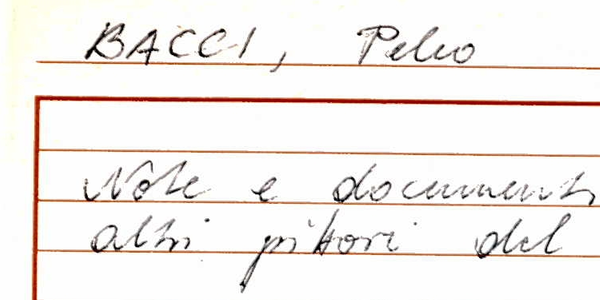 BACCI, Peleo
Note e documenti
altri pittori del